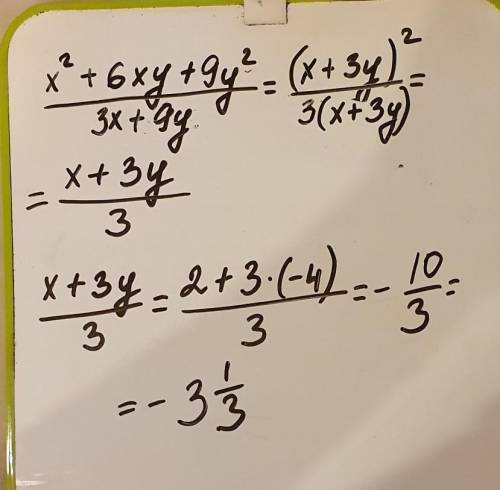 (x² + 6xy + 9y²)/(3x + 9y) = (x + 3y)²/(3(x + 3y)) =
= (x + 3y)/3
(x + 3y)/3 = (2 + 3·(-4))/3 = - 10/3 =
= - 3 1/3